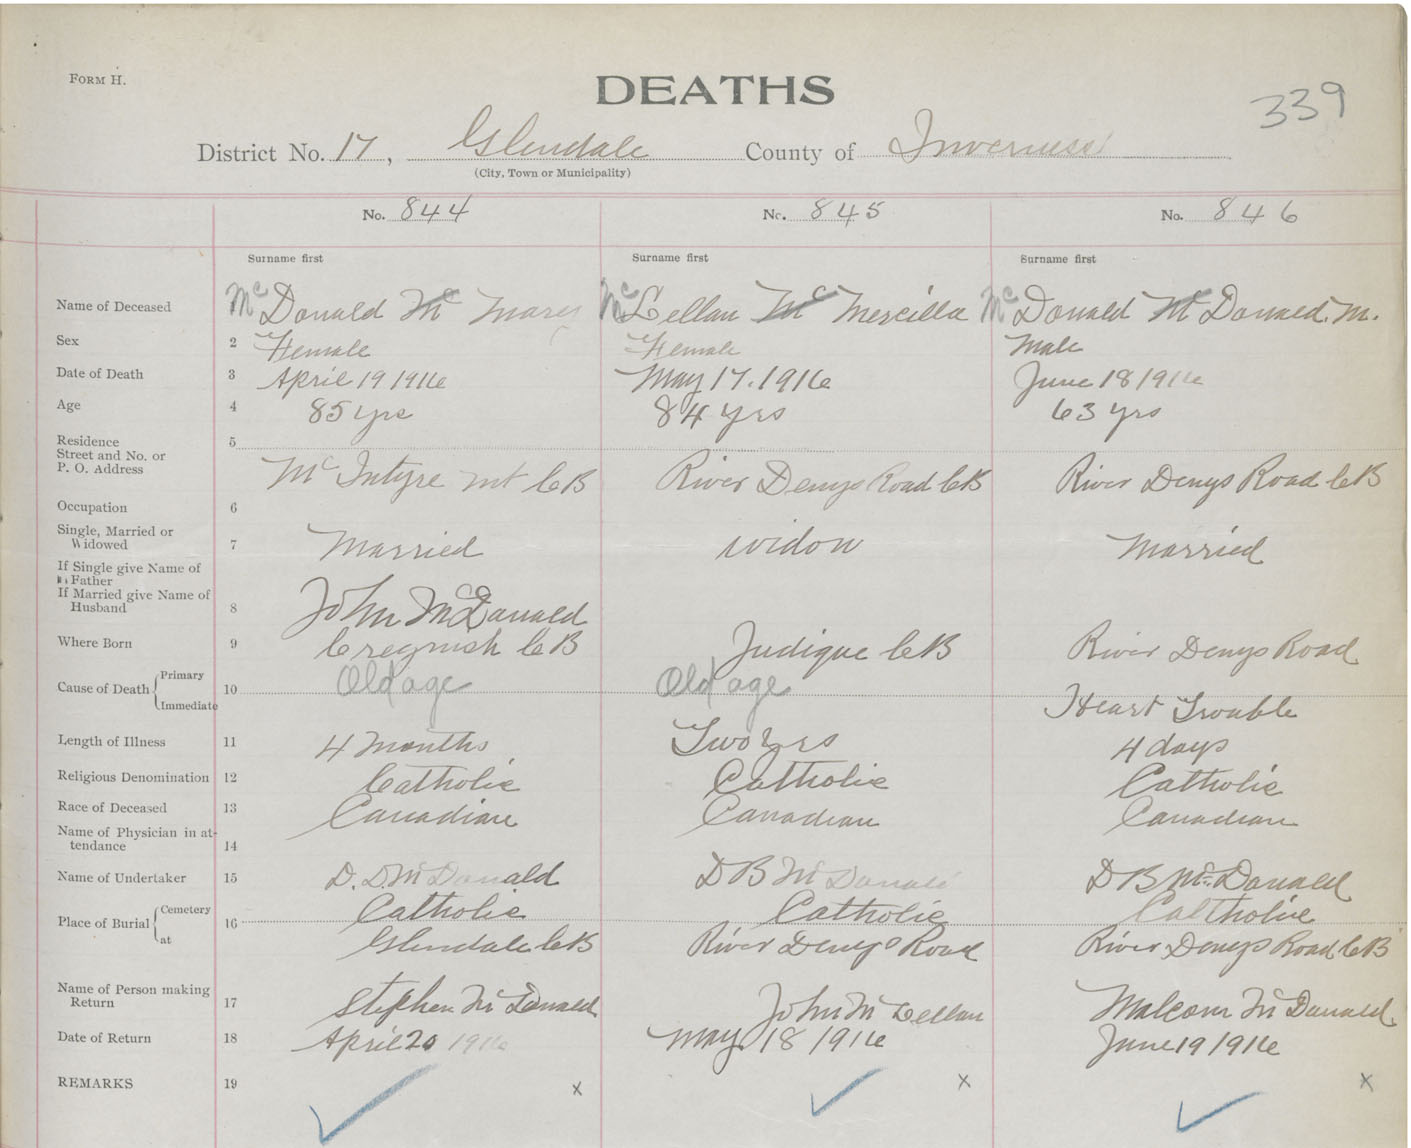 FORM H.
DEATHS
339
District No. 17, Glendale County of Inverness
(City, Town or Municipality)
No. 844 No. 845 No. 846
Surname first Surname first Surname first
Name of Deceased 1 Mc Donald Mc Mary Mc Lellan Mc Mercilla Mc Donald Mc Donald. M.
Sex 2 Female Female Male
Date of Death 3 April 19 1916 May 17. 1916 June 18 1916
Age 4 85 yrs 84 yrs 63 yrs
Residence 5
Street and No. or
P. O. Address McIntyre Mt C B River Denys Road C B River Denys Road C B
Occupation 6
Single, Married or
Widowed 7 Married Widow Married
If Single give Name of
Father
If Married give Name of
Husband 8 John McDonald
Where Born 9 Cregnish C B Judique C B River Denys Road
Cause of Death Primary 10 Old age Old age
Immediate Heart Trouble
Length of Illness 11 4 months Two yrs 4 days
Religious Denomination 12 Catholic Catholic Catholic
Race of Deceased 13 Canadian Canadian Canadian
Name of Physician in at-
tendance 14
Name of Undertaker 15 D. D. McDonald D B McDonald D B McDonald
Place of Burial Cemetery 16 Catholic Catholic Catholic
at Glendale C B River Denys Road River Denys Road C B
Name of Person making
Return 17 Stephen McDonald John McLellan Malcom McDonald
Date of Return 18 April 20 1916 May 18 1916 June 19 1916
REMARKS 19 x x x